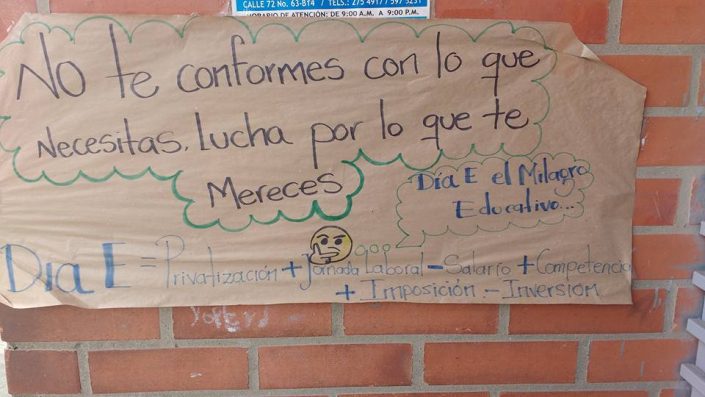 CALLE 72 No. 63-BT4 / TELS.: 275 4917 / 597 5251
HORARIO DE ATENCIÓN: DE 9:00 A.M. A 9:00 P.M.
No te conformes con lo que
Necesitas. Lucha por lo que te
Mereces
Día E el Milagro
Educativo...
Día E = Privatización + Jornada Laboral - Salario + Competencia
+ Imposición - Inversión